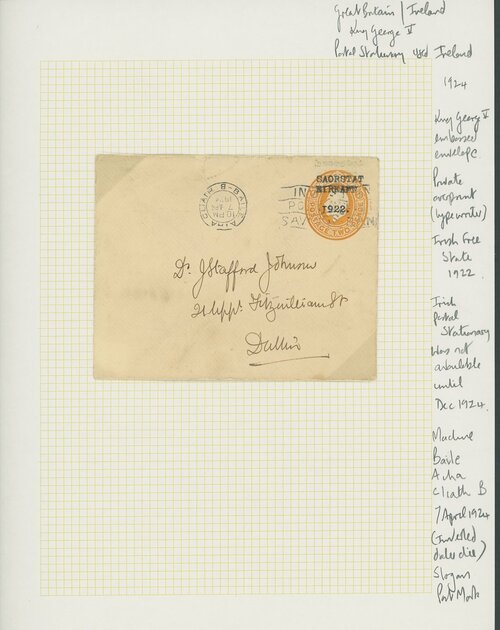 Great Britain / Ireland
King George V
Postal Stationery used Ireland
1924
King George V
embossed
envelope
Private
overprint
(typewriter)
Irish Free
State
1922
Irish
Postal
Stationary
Was not
available
until
Dec 1924.
Machine
Baile
Atha
Cliath B
7 April 1924
(Inverted
dater die)
Slogan
Post Mark
SAORSTAT
EIREANN
1922.
POSTAGE TWO PENCE
BAILE ATHA CLIATH B
10 PM
7 AP
1924
Dr. J Stafford Johnson
21 Uppr. Fitzwilliam St
Dublin